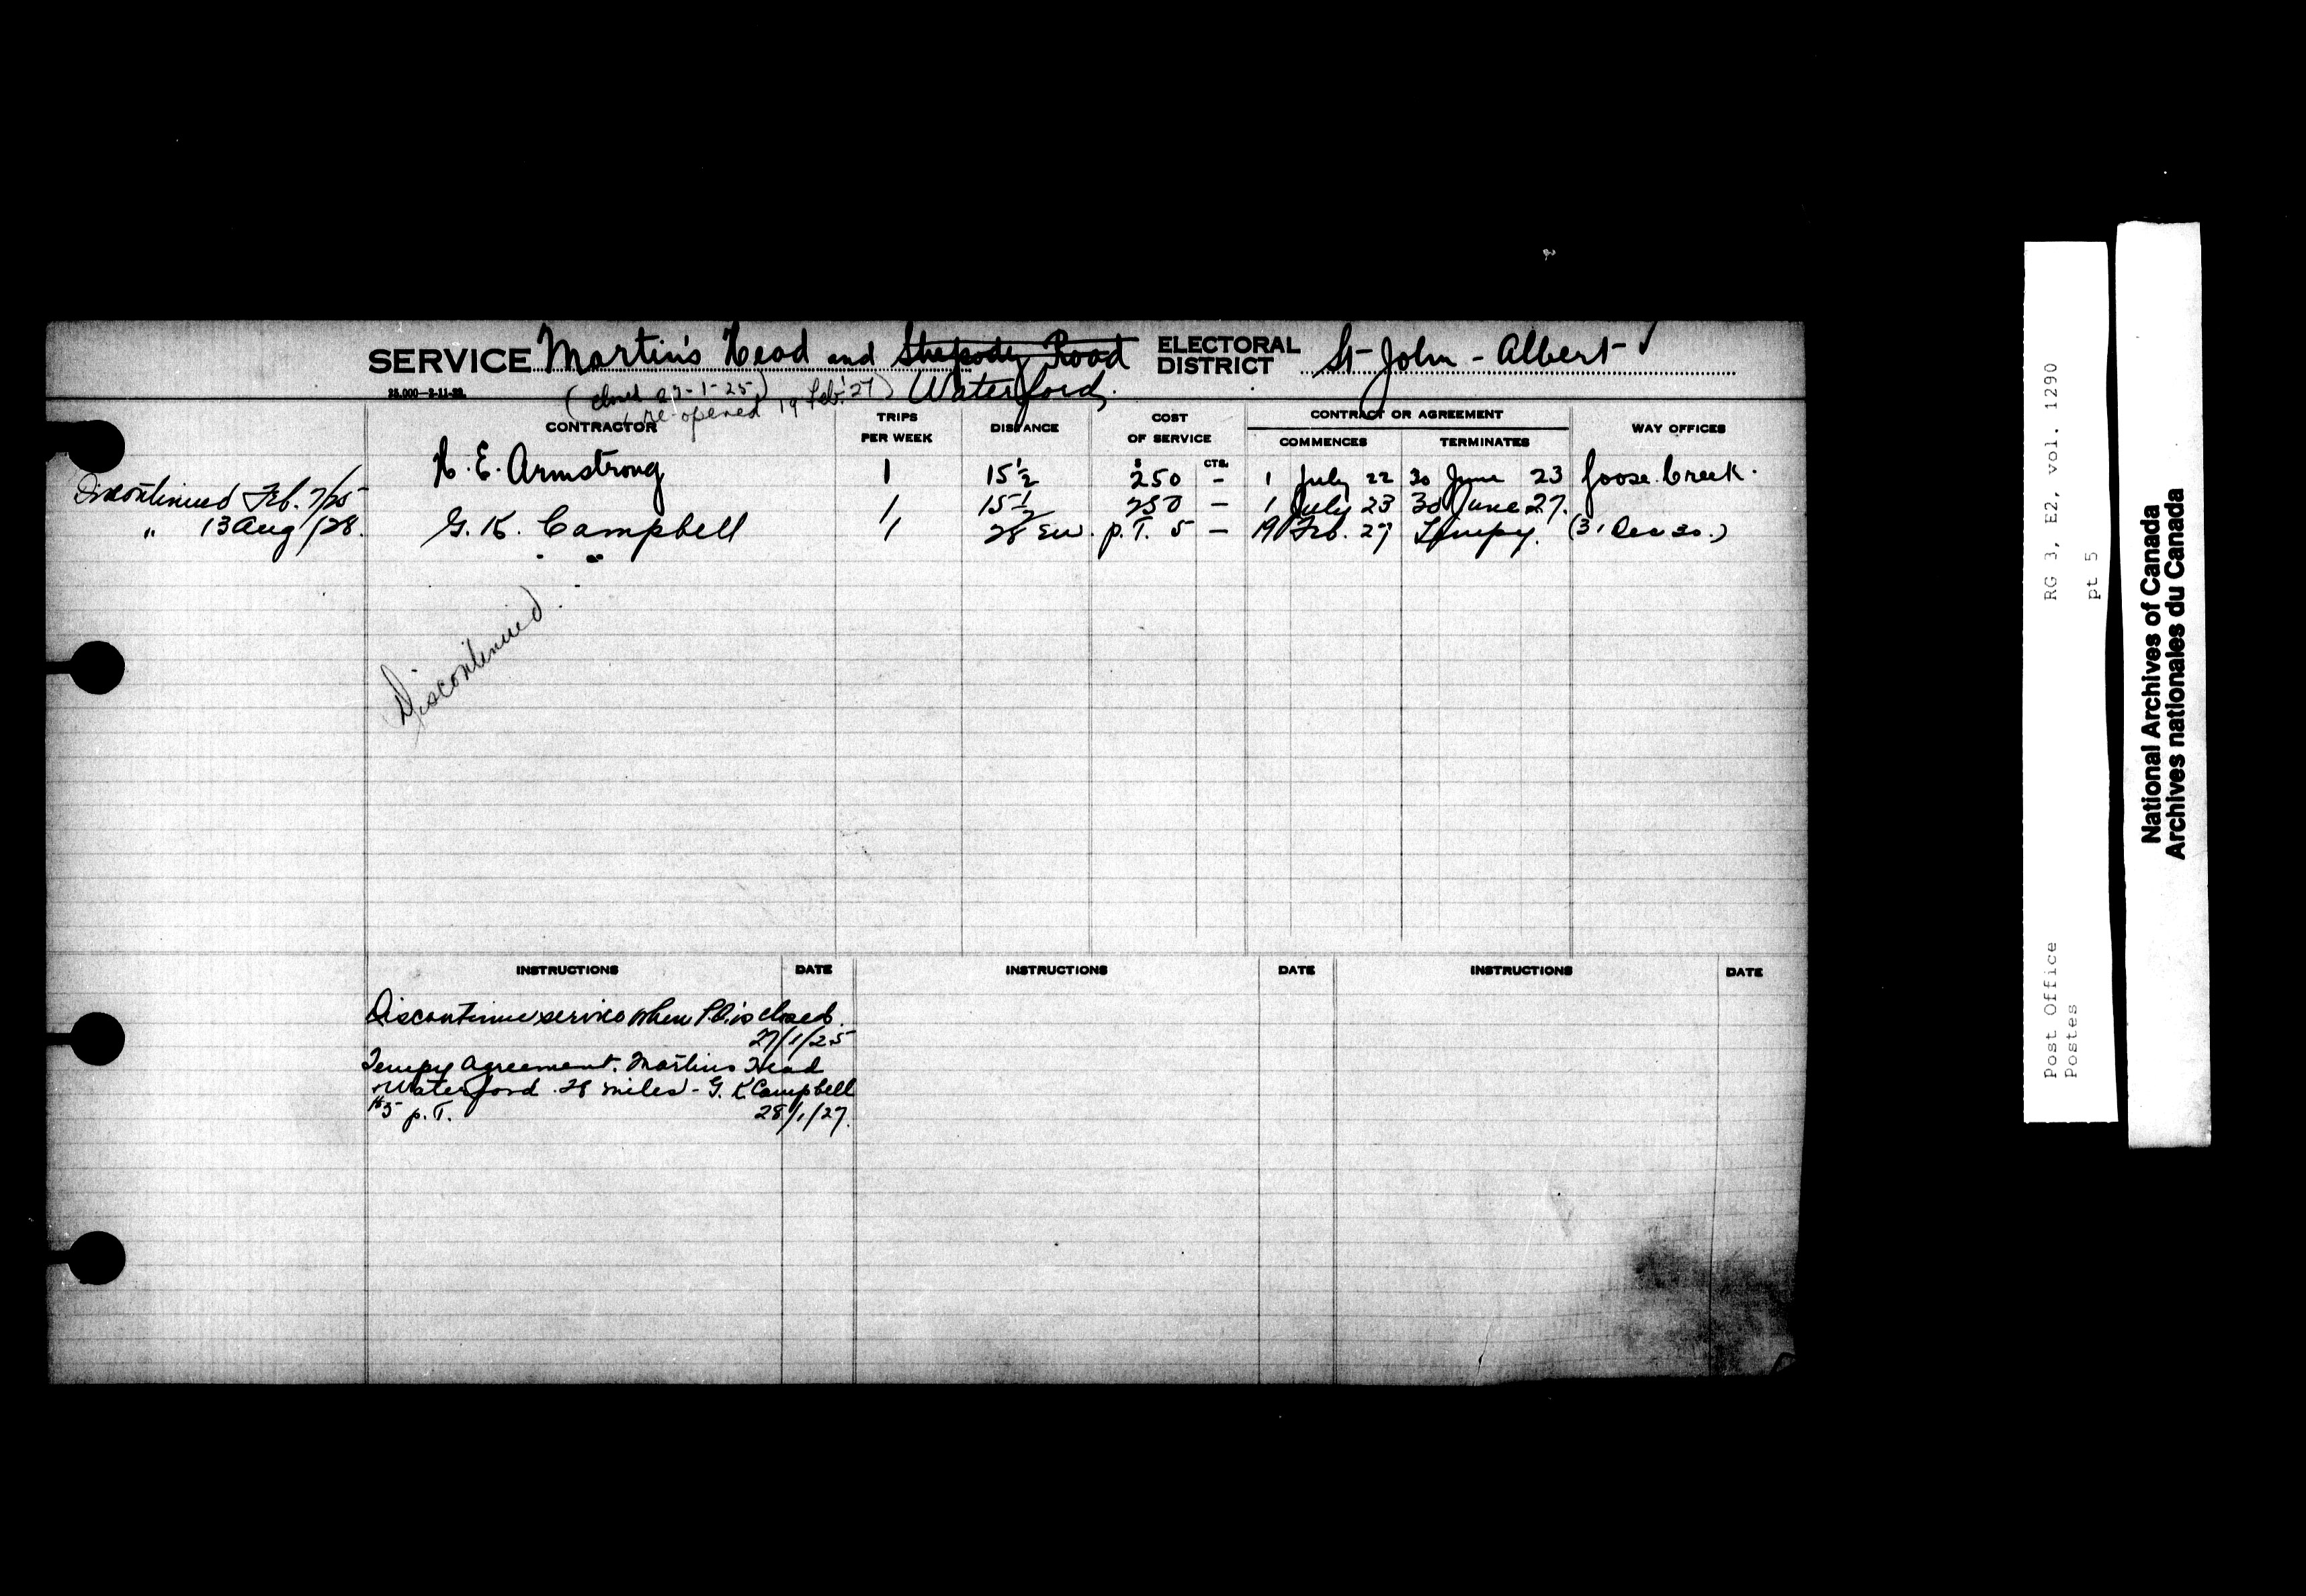 SERVICE Martin's Head and Shepody Road ELECTORAL DISTRICT St John - Albert
25,000—2-11-22.
(closed 27-1-25) Waterford
re-opened 19 Feb. '27)
CONTRACTOR TRIPS PER WEEK DISTANCE COST OF SERVICE CONTRACT OR AGREEMENT COMMENCES TERMINATES WAY OFFICES
$ CTS.
H. E. Armstrong 1 15 ½ 250 – 1 July 22 30 June 23 Goose Creek.
Discontinued Feb. 7/25 1 15 ½ 250 – 1 July 23 30 June 27.
" 13 Aug /28. G. K. Campbell 1 28 EW. p.T. 5 – 19 Feb. 27 Tempy. (31 Dec 30.)
" "
Discontinued.
INSTRUCTIONS DATE INSTRUCTIONS DATE INSTRUCTIONS DATE
Discontinue service when P.O. is closed.
27/1/25
Tempy Agreement. Martins Head
& Waterford 28 miles - G. K Campbell
$5 p.T. 28/1/27.
Post Office RG 3, E2, vol. 1290
Postes pt 5
National Archives of Canada
Archives nationales du Canada